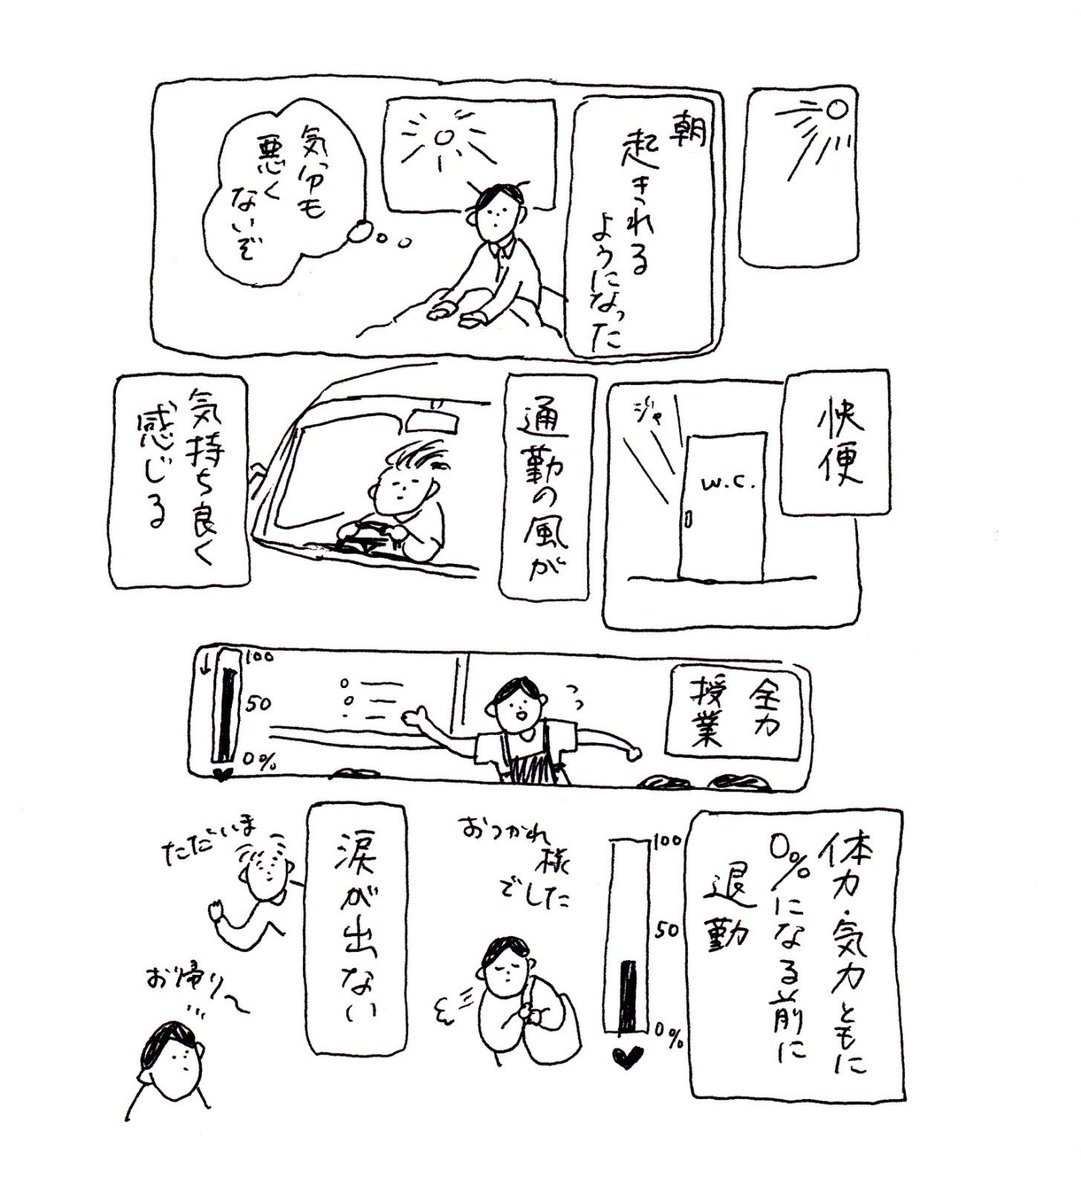 朝
起きれる
ようになった
気分も
悪く
ないぞ
快便
ジャ
W.C.
通勤の風が
気持ち良く
感じる
全力
授業
100
50
0%
体力・気力ともに
0%になる前に
退勤
100
50
0%
おつかれ
様
でした
涙が出ない
ただいま
お帰り〜